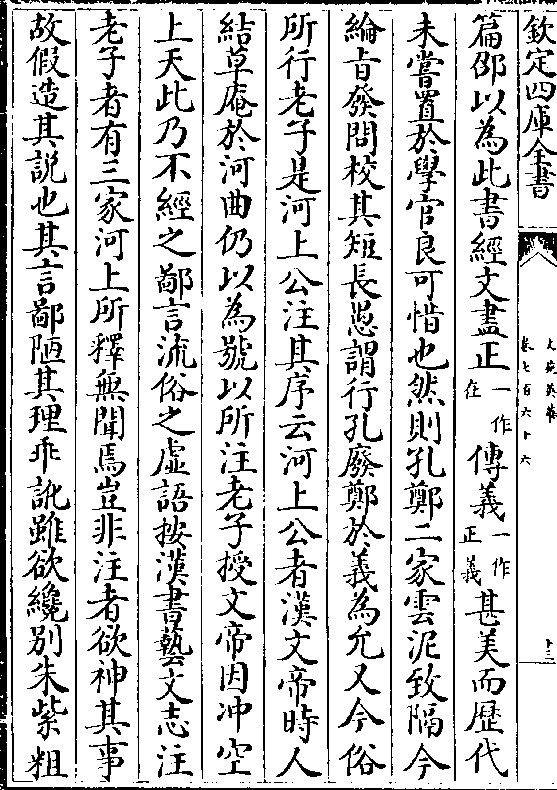 欽定四庫全書
文苑英華
卷七百六十六
十三
篇邵以為此書經文盡正一作在傳義一作正義甚美而歷代
未嘗置於學官良可惜也然則孔鄭二家雲泥致隔今
綸旨發問校其短長愚謂行孔廢鄭於義為允又今俗
所行老子是河上公注其序云河上公者漢文帝時人
結草庵於河曲仍以為號以所注老子授文帝因冲空
上天此乃不經之鄙言流俗之虛語按漢書藝文志注
老子者有三家河上所釋無聞焉豈非注者欲神其事
故假造其說也其言鄙陋其理乖訛雖欲纔別朱紫粗